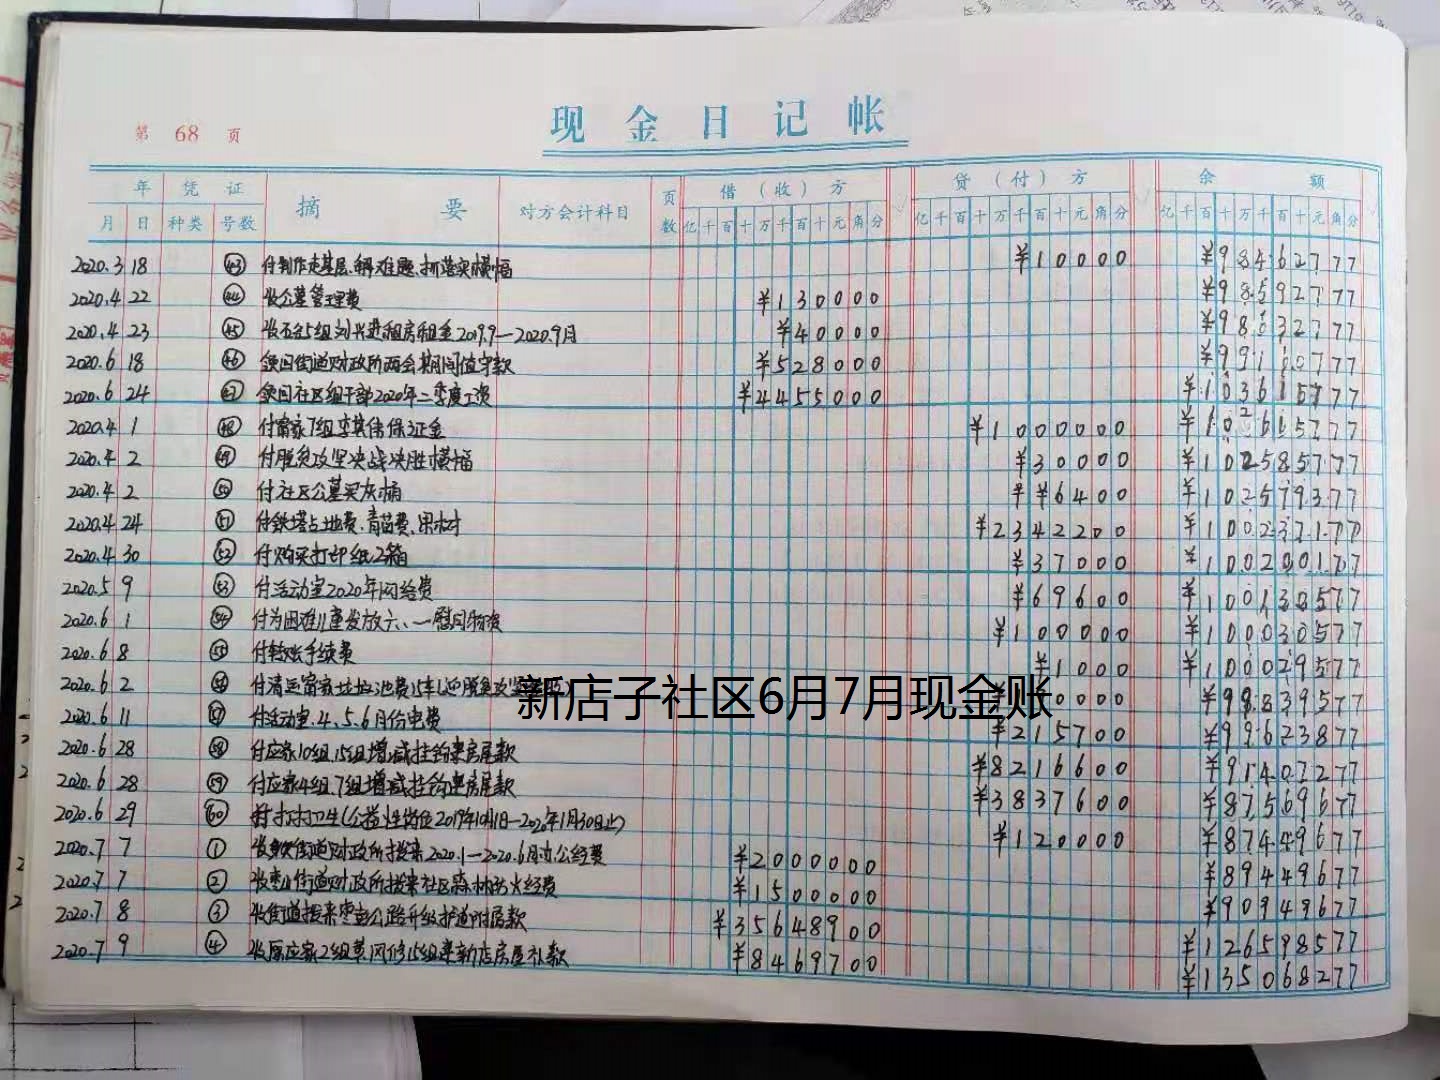 现金日记帐
第 68 页
年 凭证 摘要 对方会计科目 页数 借（收）方 贷（付）方 余额
月 日 种类 号数 亿千百十万千百十元角分 亿千百十万千百十元角分 亿千百十万千百十元角分
2020.3 18 43 付制作走基层、解难题、抓落实横幅 ¥10000 ¥98462777
2020.4 22 44 收公墓管理费 ¥130000 ¥98592777
2020.4 23 45 收石岔5组刘兴进租房租金2019.9—2020.9月 ¥40000 ¥98632777
2020.6 18 46 领回街道财政所两会期间值守款 ¥528000 ¥99160777
2020.6 24 47 领回社区组干部2020年二季度工资 ¥4455000 ¥103615777
2020.4 1 48 付甯家7组李其伟保证金 ¥1000000 ¥102615777
2020.4 2 49 付脱贫攻坚决战决胜横幅 ¥30000 ¥102585777
2020.4 2 50 付社区公墓买灰桶 ¥¥6400 ¥102579377
2020.4 24 51 付铁塔占地费、青苗费、果木才 ¥2342200 ¥100237177
2020.4 30 52 付购买打印纸2箱 ¥37000 ¥100200177
2020.5 9 53 付活动室2020年网络费 ¥69600 ¥100130577
2020.6 1 54 付为困难儿童发放六、一慰问物资 ¥100000 ¥100030577
2020.6 8 55 付转账手续费 ¥1000 ¥100029577
2020.6 2 56 付清运甯家垃圾池费15车(迎脱贫攻坚 ¥99839577
新店子社区6月7月现金账
2020.6 11 57 付活动室.4.5.6月份电费 ¥215700 ¥99623877
2020.6 28 58 付应家10组.15组增减挂钩来房屋款 ¥8216600 ¥91407277
2020.6 28 59 付应家4组.7组增减挂钩建房屋款 ¥3837600 ¥87569677
2020.6 29 60 付打扫卫生(公益性岗位2019年10月1日—2020年1月30日止) ¥120000 ¥87449677
2020.7 7 1 收街道财政所拨来2020.1—2020.6月办公经费 ¥2000000 ¥89449677
2020.7 7 2 收枣山街道财政所拨来社区森林防火经费 ¥1500000 ¥90949677
2020.7 8 3 收街道拨来枣彭公路升级扩道附属款 ¥35648900 ¥126598577
2020.7 9 4 收原应家2组 15组来新店房屋补款 ¥8469700 ¥135068277